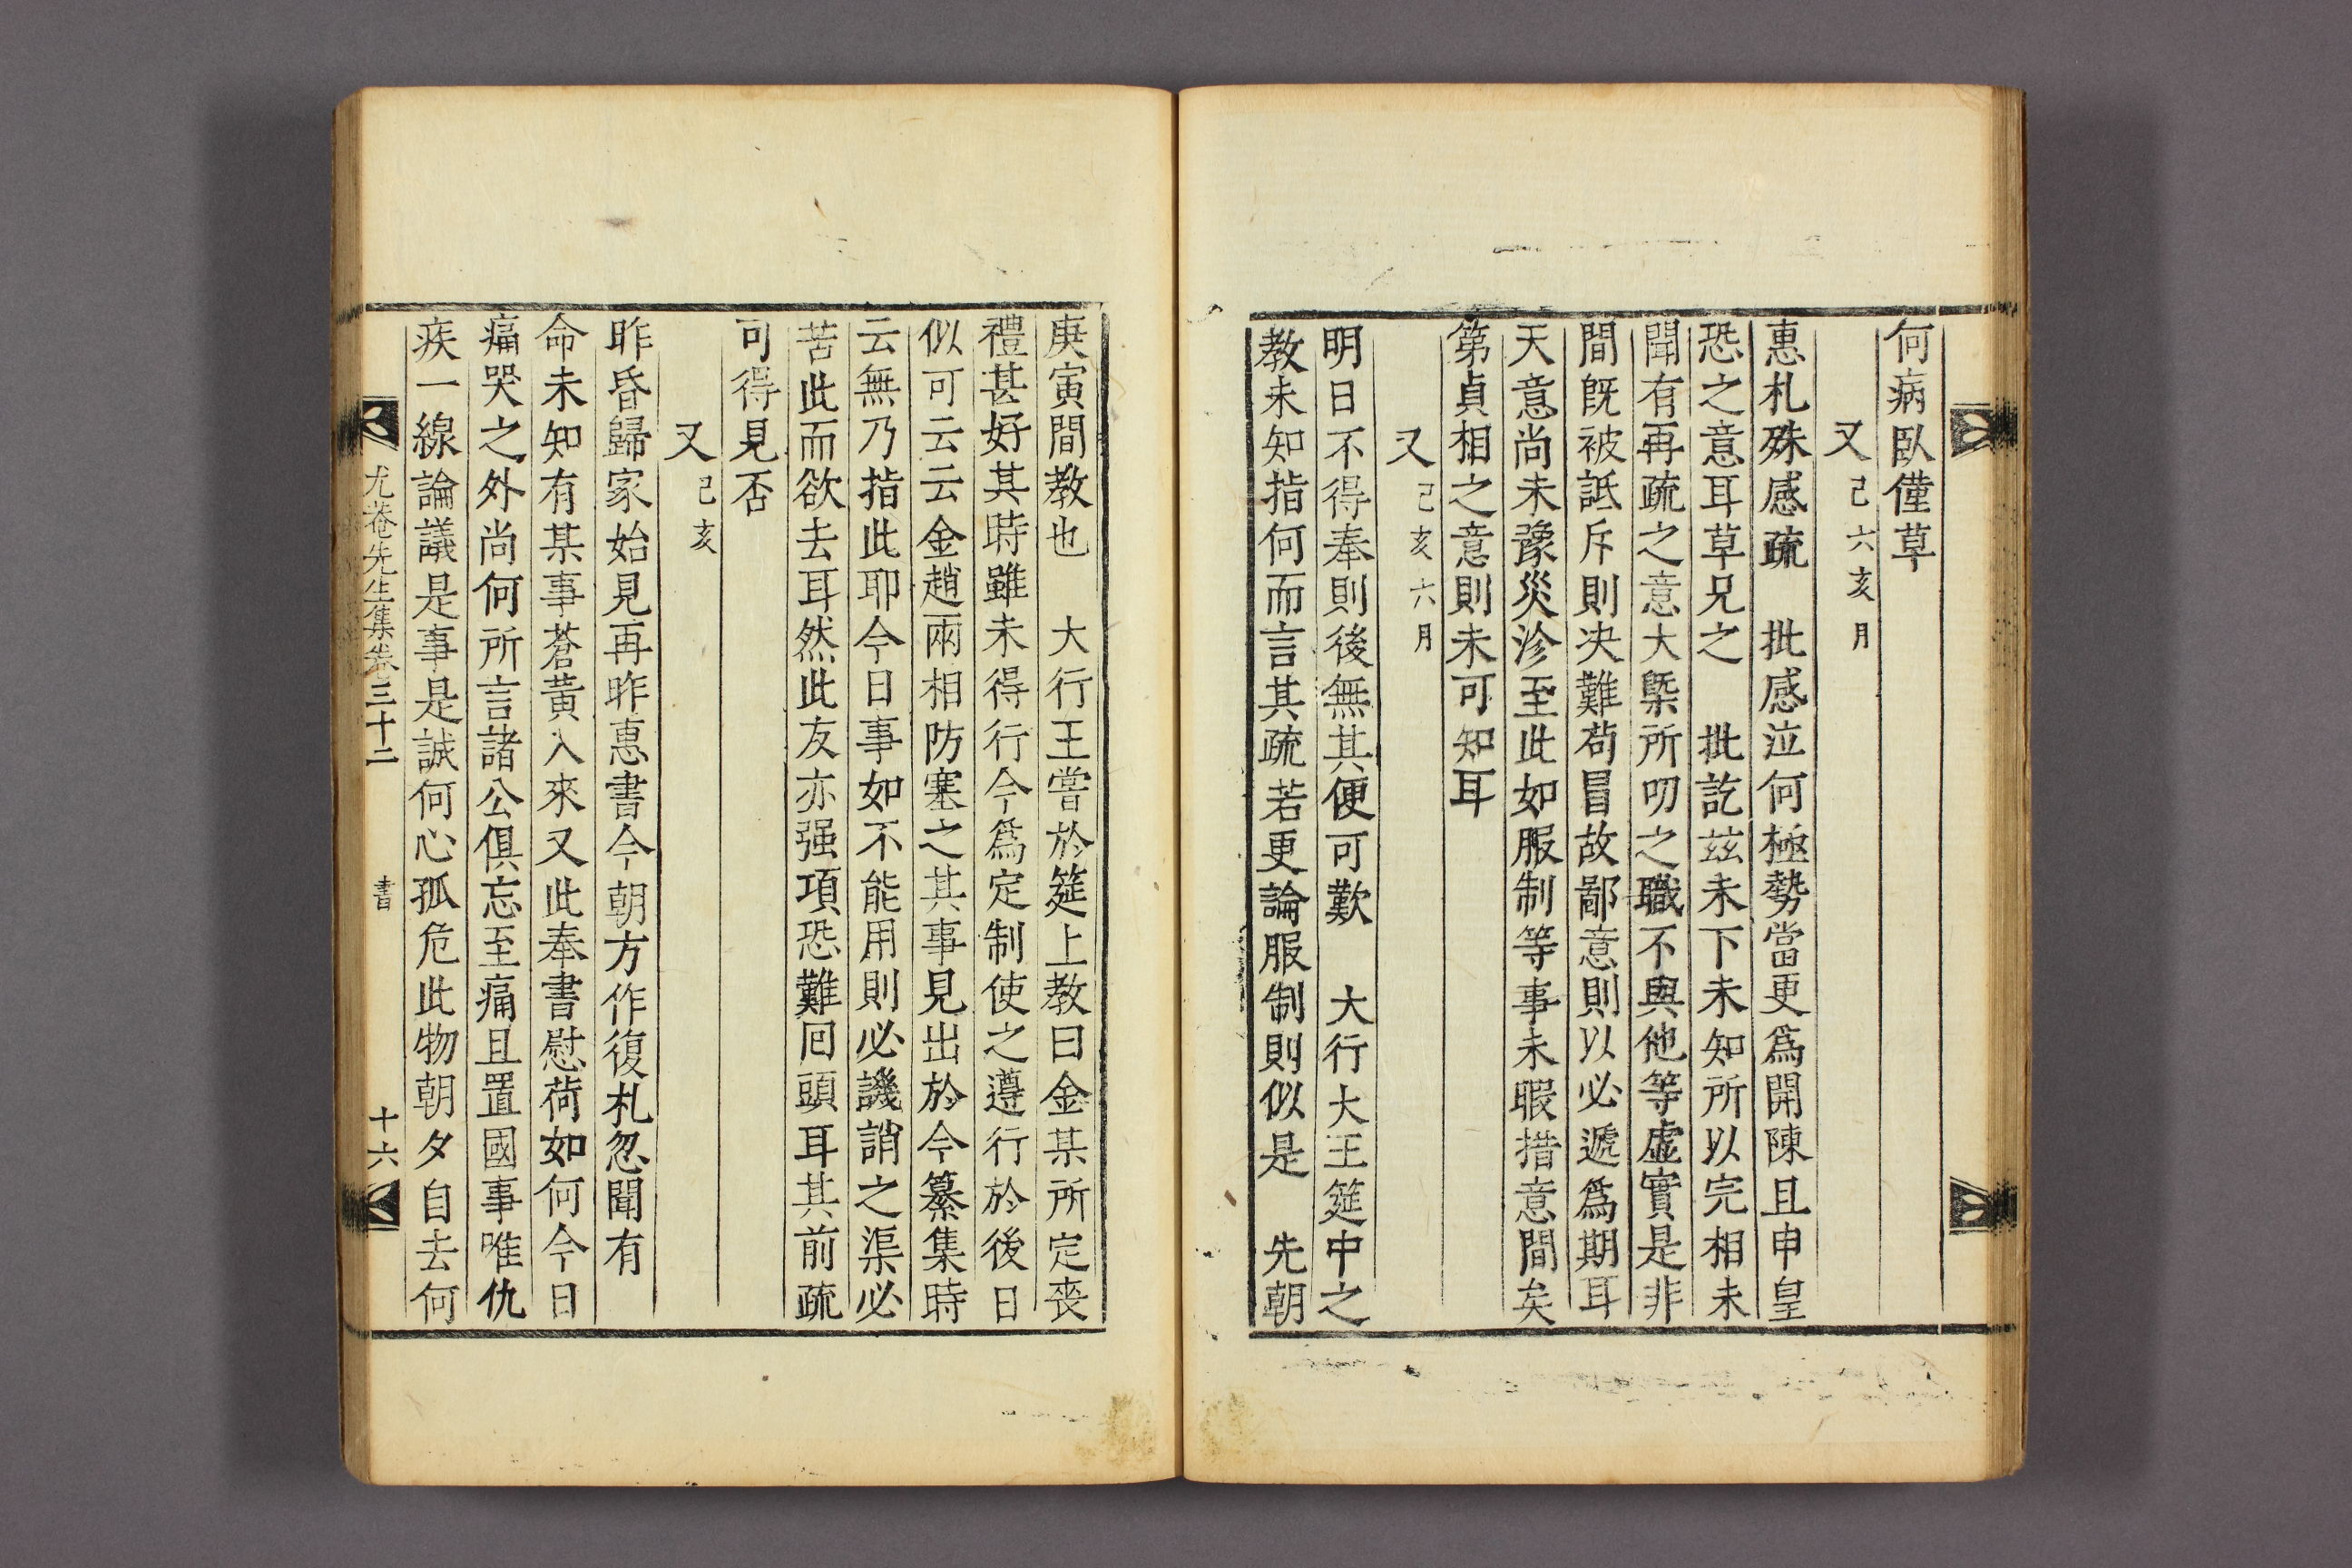 何病臥僅草
又己亥六月
惠札殊感疏　批感泣何極勢當更爲開陳且申皇
恐之意耳草兄之　批訖玆未下未知所以完相未
聞有再疏之意大槩所叨之職不與他等虛實是非
間旣被詆斥則决難苟冒故鄙意則以必遞爲期耳
天意尚未豫災沴至此如服制等事未暇措意間矣
第貞相之意則未可知耳
又己亥六月
明日不得奉則後無其便可歎　大行大王筵中之
教未知指何而言其疏若更論服制則似是　先朝
庚寅間教也　大行王嘗於筵上教曰金某所定喪
禮甚好其時雖未得行今爲定制使之遵行於後日
似可云云金趙兩相防塞之其事見出於今纂集時
云無乃指此耶今日事如不能用則必譏誚之渠必
苦此而欲去耳然此友亦强項恐難回頭耳其前疏
可得見否
又己亥
昨昏歸家始見再昨惠書今朝方作復札忽聞有
命未知有某事蒼黃入來又此奉書慰荷如何今日
痛哭之外尚何所言諸公俱忘至痛且置國事唯仇
疾一線論議是事是誠何心孤危此物朝夕自去何
尤菴先生集卷三十二　書　十六